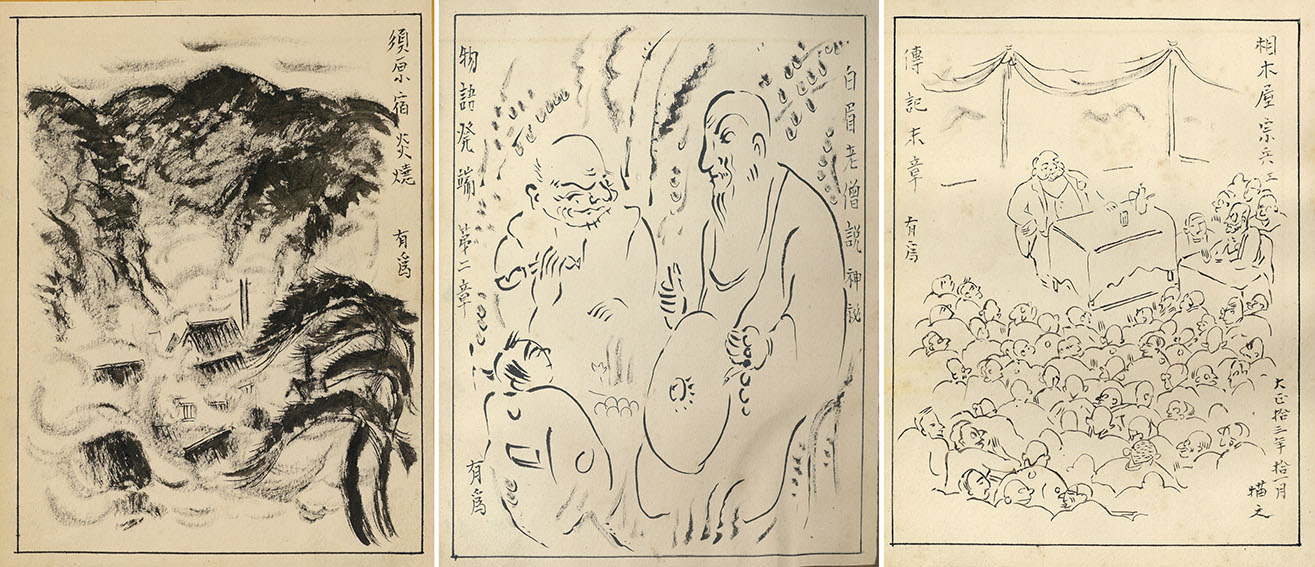 須原宿 炎燒
有爲
白眉老僧説神説
物語発端 第二章
有爲
相木屋 宗兵ヱ
傳記末章 有為
大正拾三年拾一月
描之